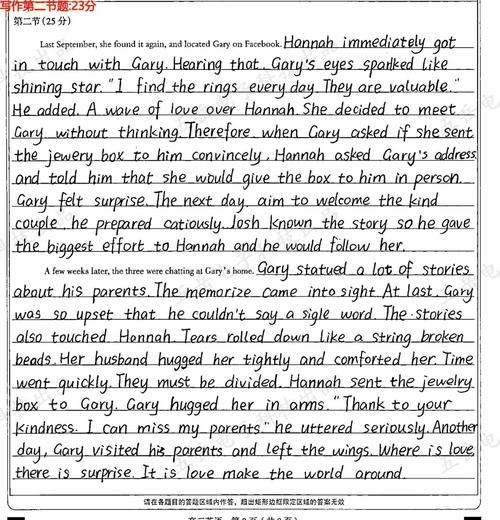 写作第二节题:23分
第二节(25 分)
Last September, she found it again, and located Gary on Facebook. Hannah immediately got
in touch with Gary. Hearing that, Gary's eyes sparkled like
shining star. "I find the rings every day. They are valuable."
He added. A wave of love over Hannah. She decided to meet
Gary without thinking. Therefore, when Gary asked if she sent
the jewery box to him convincely, Hannah asked Gary's address
and told him that she would give the box to him in person.
Gary felt surprise. The next day, aim to welcome the kind
couple, he prepared catiously. Josh known the story so he gave
the biggest effort to Hannah and he would follow her.
A few weeks later, the three were chatting at Gary's home. Gary statued a lot of stories
about his parents. The memorize came into sight. At last, Gary
was so upset that he couldn't say a sigle word. The stories
also touched Hannah. Tears rolled down like a string broken
beads. Her husband hugged her tightly and comforted her. Time
went quickly. They must be divided. Hannah sent the jewelry
box to Gary. Gary hugged her in arms. "Thank to your
kindness. I can miss my parents." he uttered seriously. Another
day, Gary visited his parents and left the wings. Where is love,
there is surprise. It is love make the world around.
请在各题目的答题区域内作答，超出矩形边框限定区域的答案无效